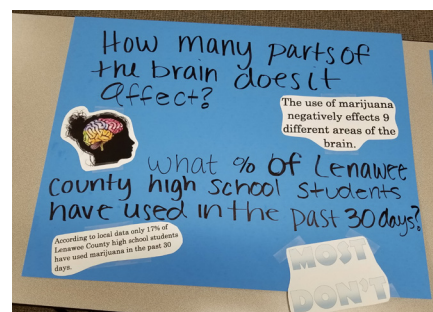 How many parts of
the brain does it
affect?
The use of marijuana
negatively effects 9
different areas of the
brain.
What % of Lenawee
County high school students
have used in the past 30 days?
According to local data only 17% of
Lenawee County high school students
have used marijuana in the past 30
days.
MOST
DON'T